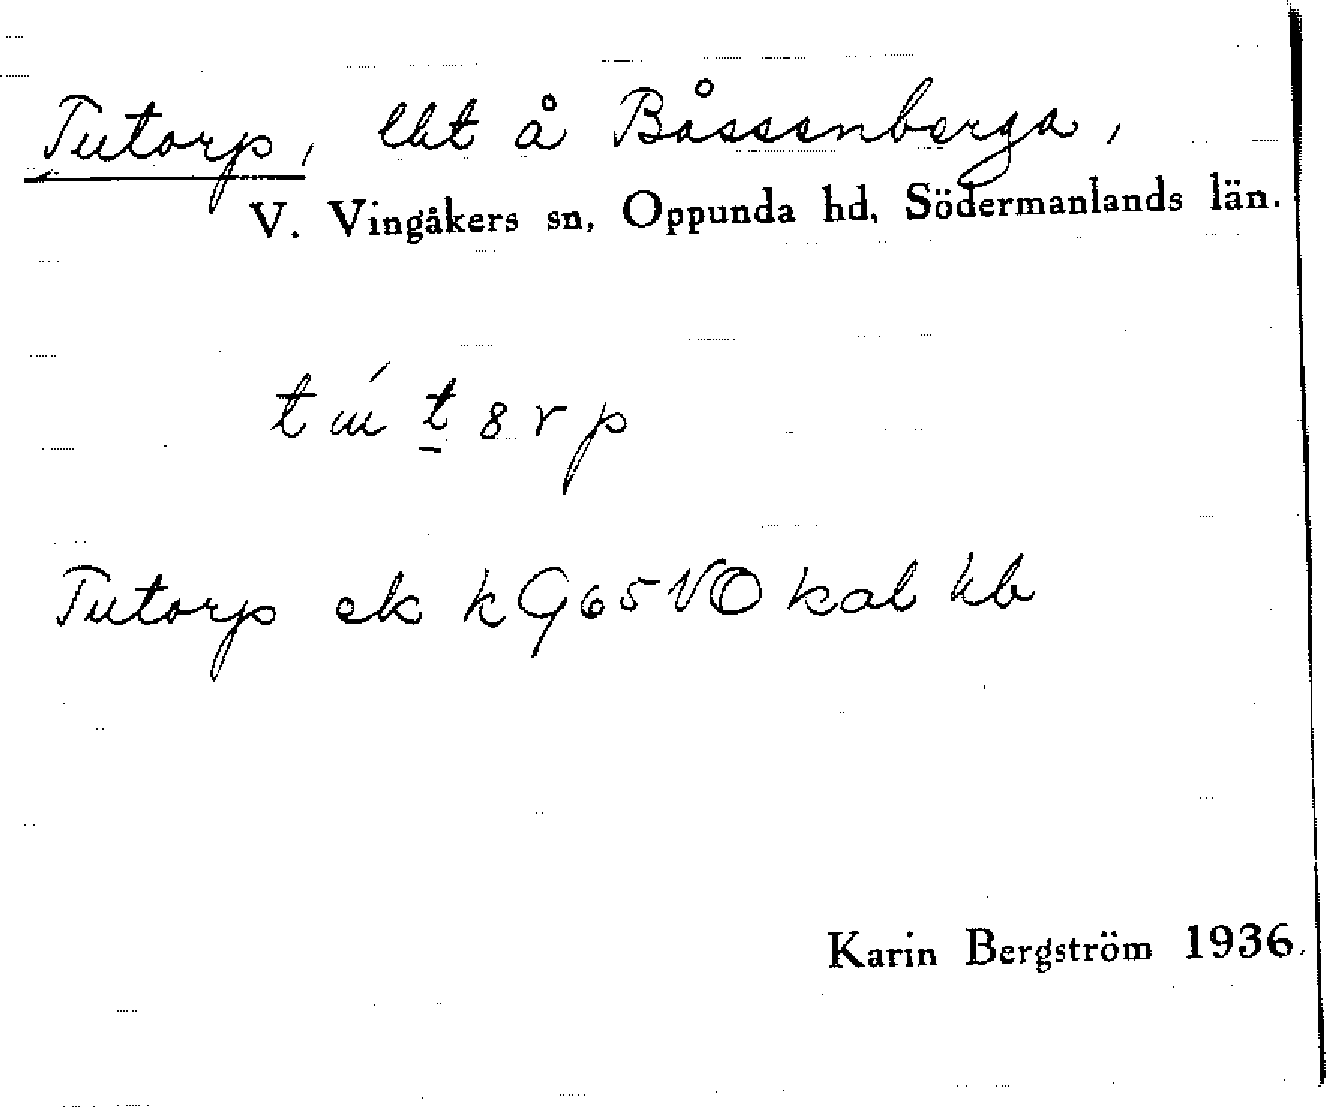 Tutorp, lht å Båsenberga,
V. Vingåkers sn, Oppunda hd, Södermanlands län.
Tutorp ek kG65VO kal hb
Karin Bergström 1936.